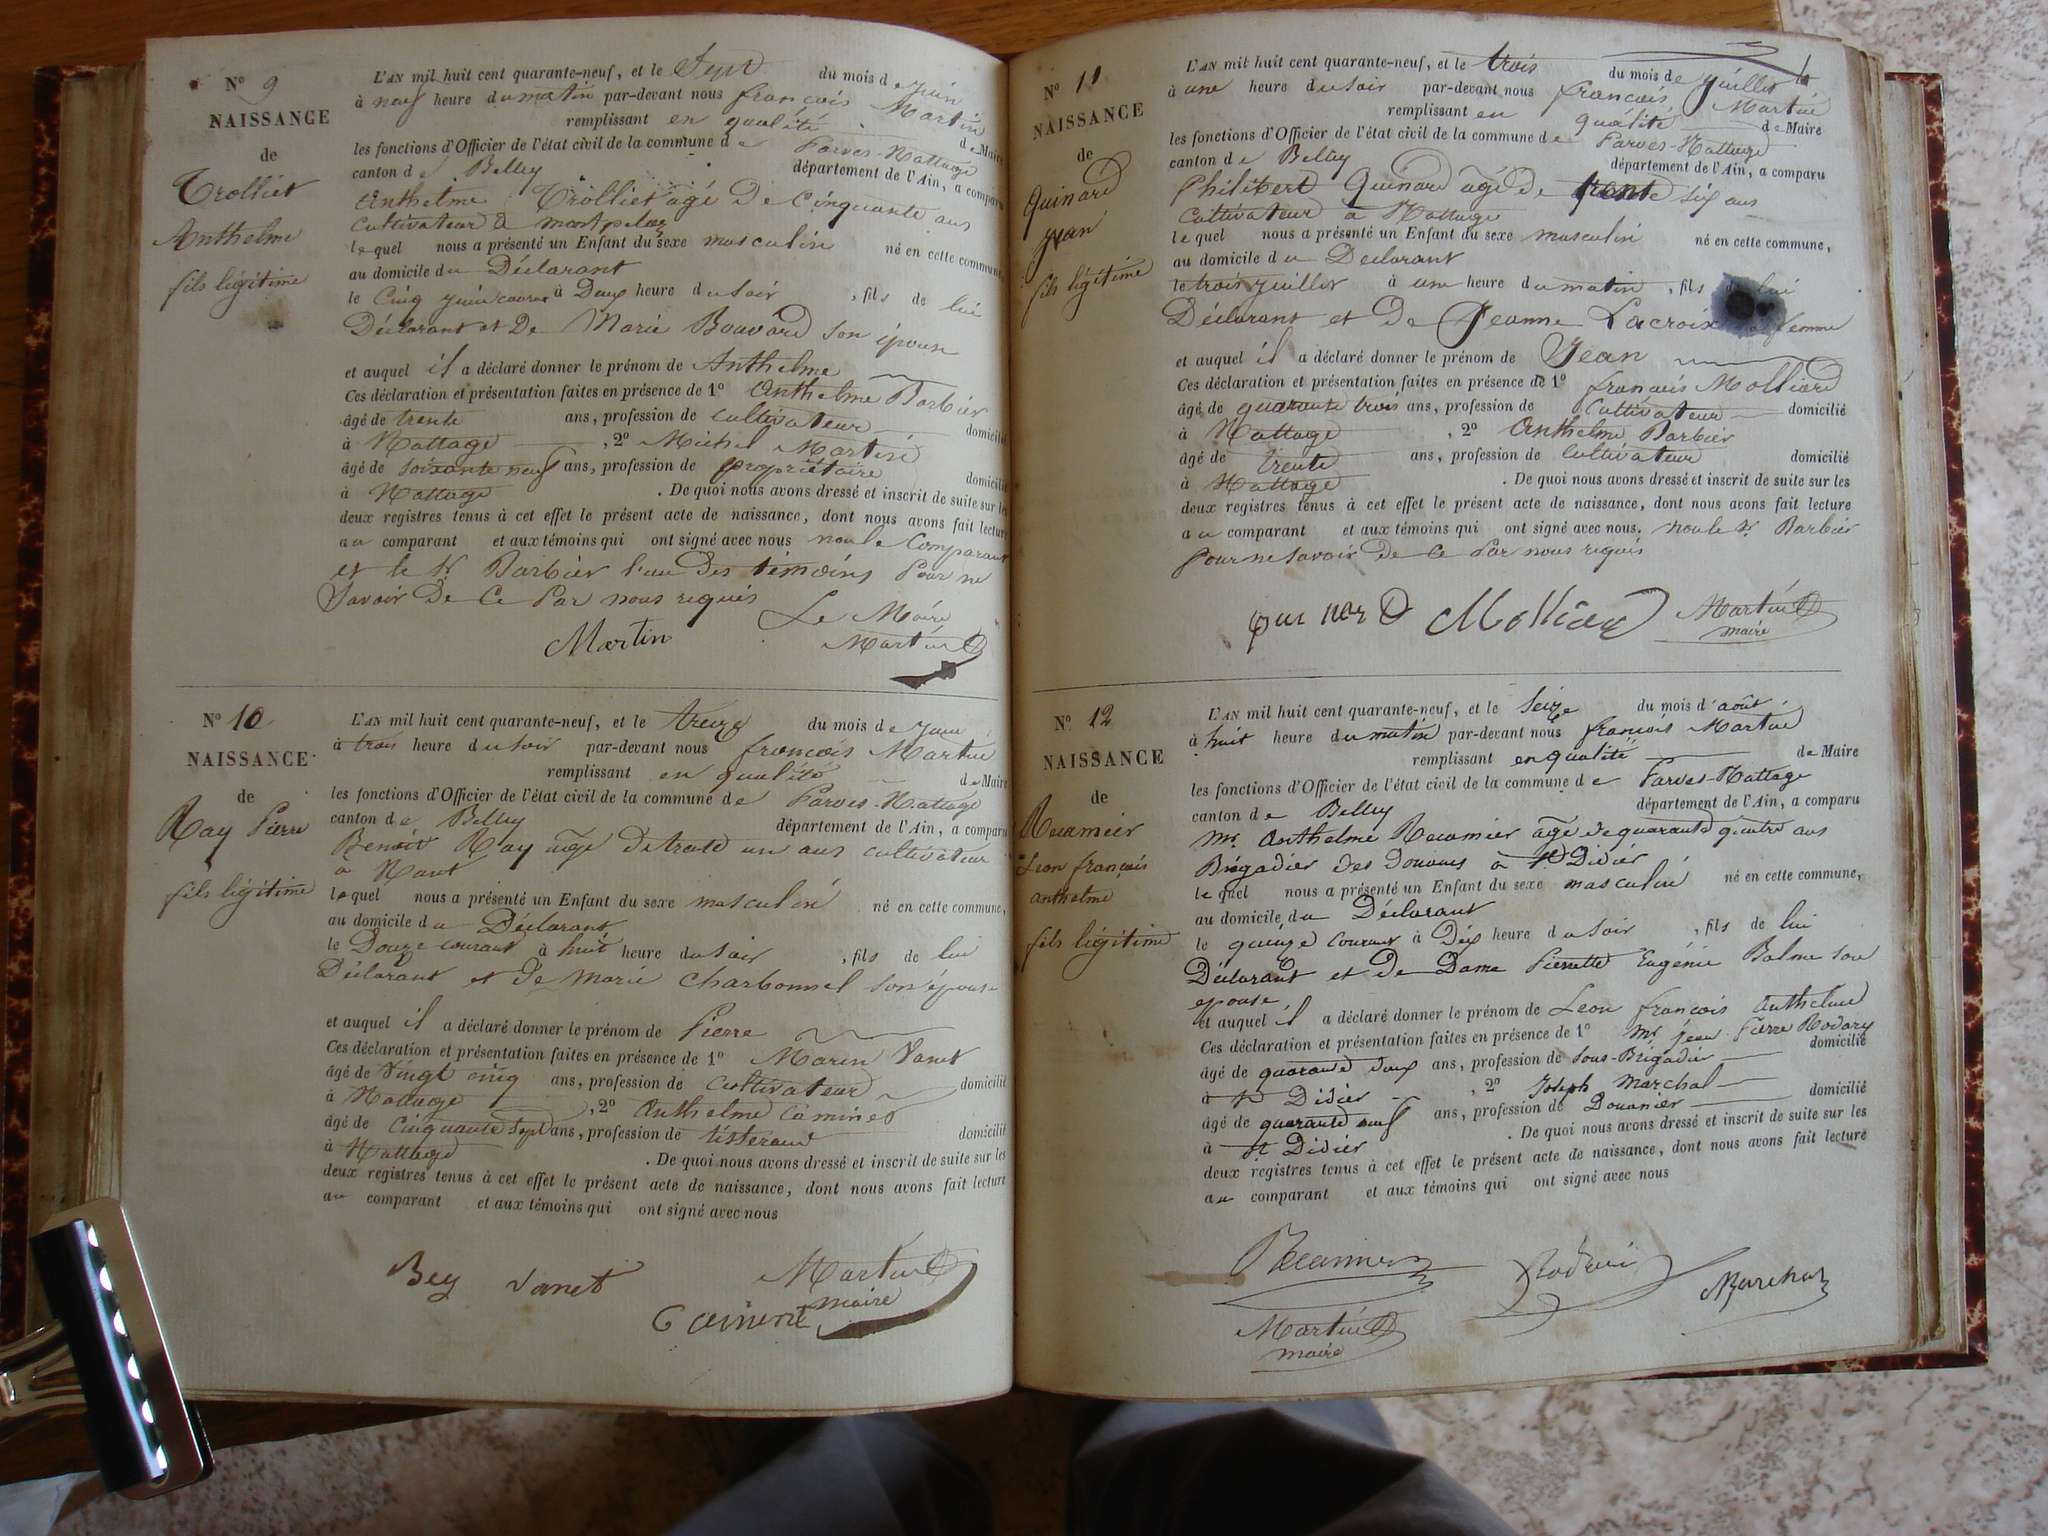 N° 9
NAISSANCE
de
Trolliet
Anthelme
fils légitime
L'AN mil huit cent quarante-neuf, et le Sept du mois de Juin
à neuf heure du matin par-devant nous françois Martin
remplissant en qualité de Maire
les fonctions d'Officier de l'état civil de la commune de Parves-Nattage
canton de Belley département de l'Ain, a comparu
Anthelme Trolliet agé De Cinquante ans
Cultivateur à
lequel nous a présenté un Enfant du sexe masculin né en cette commune,
au domicile du Déclarant
le Cinq juin courant à Deux heure du soir, fils de lui
Déclarant et De Marie Bouvard son épouse
et auquel il a déclaré donner le prénom de Anthelme
Ces déclaration et présentation faites en présence de 1° Anthelme Barbier
âgé de trente ans, profession de cultivateur domicilié
à Nattage, 2° Michel Martin
âgé de soixante neuf ans, profession de propriétaire domicilié
à Nattage. De quoi nous avons dressé et inscrit de suite sur les
deux registres tenus à cet effet le présent acte de naissance, dont nous avons fait lecture
au comparant et aux témoins qui ont signé avec nous non le Comparant
et le Sr Barbier l'un Des témoins Pour ne
Savoir De Ce Par nous requis
Le Maire
Martin Martin
N° 10
NAISSANCE
de
Ray Pierre
fils légitime
L'AN mil huit cent quarante-neuf, et le treize du mois de Juin
à trois heure du soir par-devant nous françois Martin
remplissant en qualité de Maire
les fonctions d'Officier de l'état civil de la commune de Parves-Nattage
canton de Belley département de l'Ain, a comparu
Benoit Ray agé de trente un ans cultivateur
à
lequel nous a présenté un Enfant du sexe masculin né en cette commune,
au domicile du Déclarant
le Douze courant à huit heure du soir, fils de lui
Déclarant et De Marie Charbonnel son épouse
et auquel il a déclaré donner le prénom de Pierre
Ces déclaration et présentation faites en présence de 1° Marin Vanet
âgé de Vingt cinq ans, profession de Cultivateur domicilié
à Nattage, 2° Anthelme Caminet
âgé de Cinquante Sept ans, profession de tisserand domicilié
à Nattage. De quoi nous avons dressé et inscrit de suite sur les
deux registres tenus à cet effet le présent acte de naissance, dont nous avons fait lecture
au comparant et aux témoins qui ont signé avec nous
Rey Vanet Martin
maire
N° 11
NAISSANCE
de
Quinard
Jean
fils légitime
L'AN mil huit cent quarante-neuf, et le trois du mois de Juillet
à une heure du soir par-devant nous françois Martin
remplissant en qualité de Maire
les fonctions d'Officier de l'état civil de la commune de Parves-Nattage
canton de Belley département de l'Ain, a comparu
Philibert Quinard agé de trente six ans
Cultivateur à Nattage
lequel nous a présenté un Enfant du sexe masculin né en cette commune,
au domicile du Déclarant
le trois juillet à une heure du matin, fils de lui
Déclarant et De Jeanne Lacroix sa femme
et auquel il a déclaré donner le prénom de Jean
Ces déclaration et présentation faites en présence de 1° françois Molliard
âgé de quarante trois ans, profession de Cultivateur domicilié
à Nattage, 2° Anthelme Barbier
âgé de trente ans, profession de Cultivateur domicilié
à Nattage. De quoi nous avons dressé et inscrit de suite sur les
deux registres tenus à cet effet le présent acte de naissance, dont nous avons fait lecture
au comparant et aux témoins qui ont signé avec nous. non le Sr Barbier
pour ne savoir De Ce Par nous requis
Molliard Martin
maire
N° 12
NAISSANCE
de
Recamier
Leon françois
anthelme
fils légitime
L'AN mil huit cent quarante-neuf, et le Seize du mois d'août
à huit heure du matin par-devant nous françois Martin
remplissant en qualité de Maire
les fonctions d'Officier de l'état civil de la commune de Parves-Nattage
canton de Belley département de l'Ain, a comparu
Mr. Anthelme Recamier agé de quarante quatre ans
Brigadier des Douanes à St Didier
lequel nous a présenté un Enfant du sexe masculin né en cette commune,
au domicile du Déclarant
le quinze courant à Dix heure du soir, fils de lui
Déclarant et de Dame Pierrette Eugénie Balme son
epouse
et auquel il a déclaré donner le prénom de Leon françois Anthelme
Ces déclaration et présentation faites en présence de 1° Mr. jean Pierre Rodary
âgé de quarante deux ans, profession de Sous-Brigadier domicilié
à St Didier, 2° Joseph Marchal
âgé de quarante neuf ans, profession de Douanier domicilié
à St Didier. De quoi nous avons dressé et inscrit de suite sur les
deux registres tenus à cet effet le présent acte de naissance, dont nous avons fait lecture
au comparant et aux témoins qui ont signé avec nous
Recamier Marchal
Martin
maire